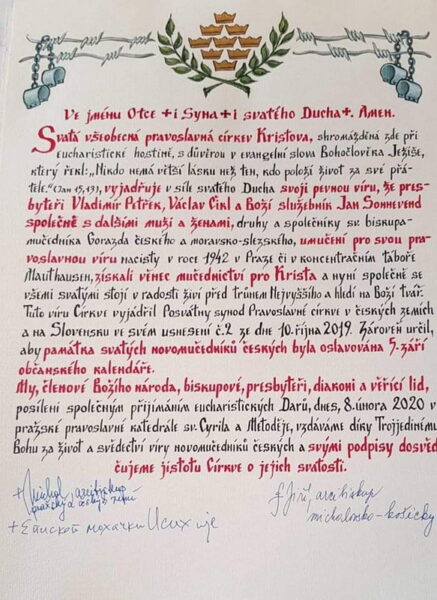 Ve jménu Otce + i Syna + i svatého Ducha +. Amen.
Svatá všeobecná pravoslavná církev Kristova, shromážděná zde při
eucharistické hostině, s důvěrou v evangelní slova Bohočlověka Ježíše,
který řekl: „Nikdo nemá větší lásku než ten, kdo položí život za své přá-
tele." (Jan 15,13), vyjadřuje v síle svatého Ducha svoji pevnou víru, že pres-
byteři Vladimír Petřek, Václav Čikl a Boží služebník Jan Sonnevend
společně s dalšími muži a ženami, druhy a společníky sv. biskupa-
mučedníka Gorazda českého a moravsko-slezského, umučení pro svou pra-
voslavnou víru nacisty v roce 1942 v Praze či v koncentračním táboře
Mauthausen, získali věnec mučednictví pro Krista a nyní společně se
všemi svatými stojí v radosti živí před trůnem Nejvyššího a hledí na Boží tvář.
Tuto víru Církve vyjádřil Posvátný synod Pravoslavné církve v českých zemích
a na Slovensku ve svém usnesení č.2 ze dne 10. října 2019. Zároveň určil,
aby památka svatých novomučedníků českých byla oslavována 5. září
občanského kalendáře.
My, členové Božího národa, biskupové, presbyteři, diakoni a věřící lid,
posíleni společným přijímáním eucharistických Darů, dnes, 8. února 2020 v
pražské pravoslavné katedrále sv. Cyrila a Metoděje, vzdáváme díky Trojjedinému
Bohu za život a svědectví víry novomučedníků českých a svými podpisy dosvěd-
čujeme jistotu Církve o jejich svatosti.
+ Michal, arcibiskup
pražský a českých zemí
+ Jiří, arcibiskup
michalovsko-košický
+ Епископ мохачки Исихије